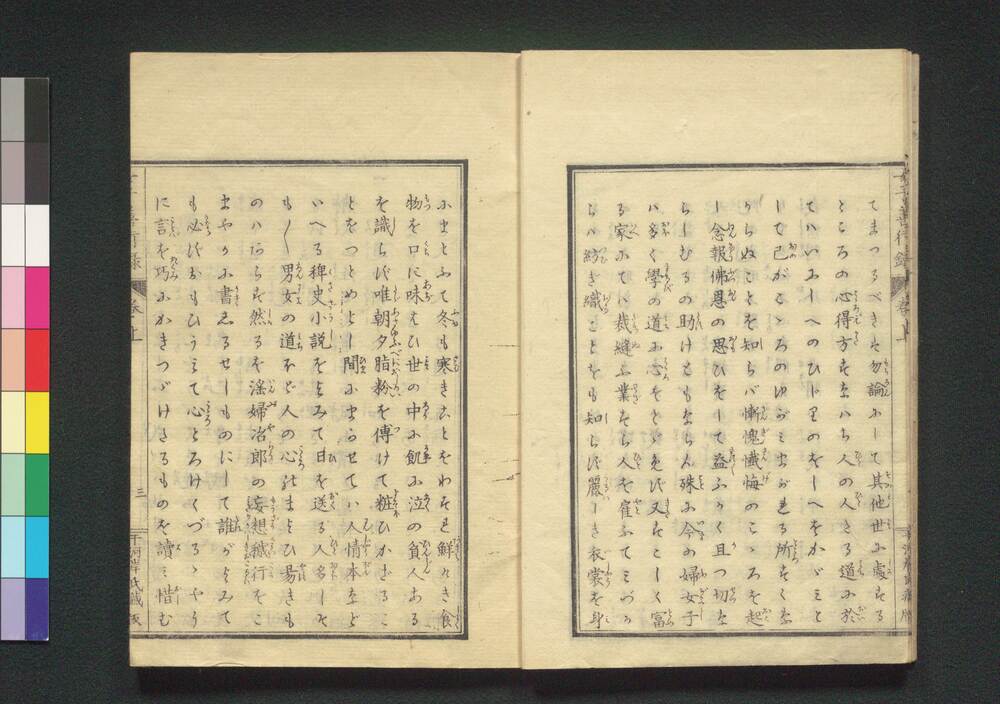 てまつるべきは勿論にして其他世に處する
ところの心得方すなハち人の人たる道に於
てハいにしへのひじりのをしへをかゞミと
して己がこゝろのゆがミまがれる所すくな
からぬことを知らバ慚愧懺悔のこゝろを起
し念報佛恩の思ひをして益ふかく且つ切な
らしむるの助けともならん殊に今の婦女子
ハ多く學の道に心をとゞめず又すこしく富
る家にてハ裁縫の業すら人を雇ふてミづか
らハ紡ぎ織ことをも知らず麗しき衣裳を身
にまとふて冬も寒きことをわすれ鮮らき食
物を口に味はひ世の中に飢に泣の貧人ある
を識らず唯朝夕脂粉を傅けて粧ひかざるこ
とをつとめとし間にまかせてハ人情本など
いへる稗史小説をよみて日を送る人多しそ
も〳〵男女の道ほど人の心はまよひ易きも
のハあらず然るを淫婦治郎の妄想穢行をこ
まやかに書しるせしものにして誰がよみて
も必ずおもひうミて心とろけくづるゝやう
に言を巧にかきつゞけたるものを讀ミ惜む
卷上
三